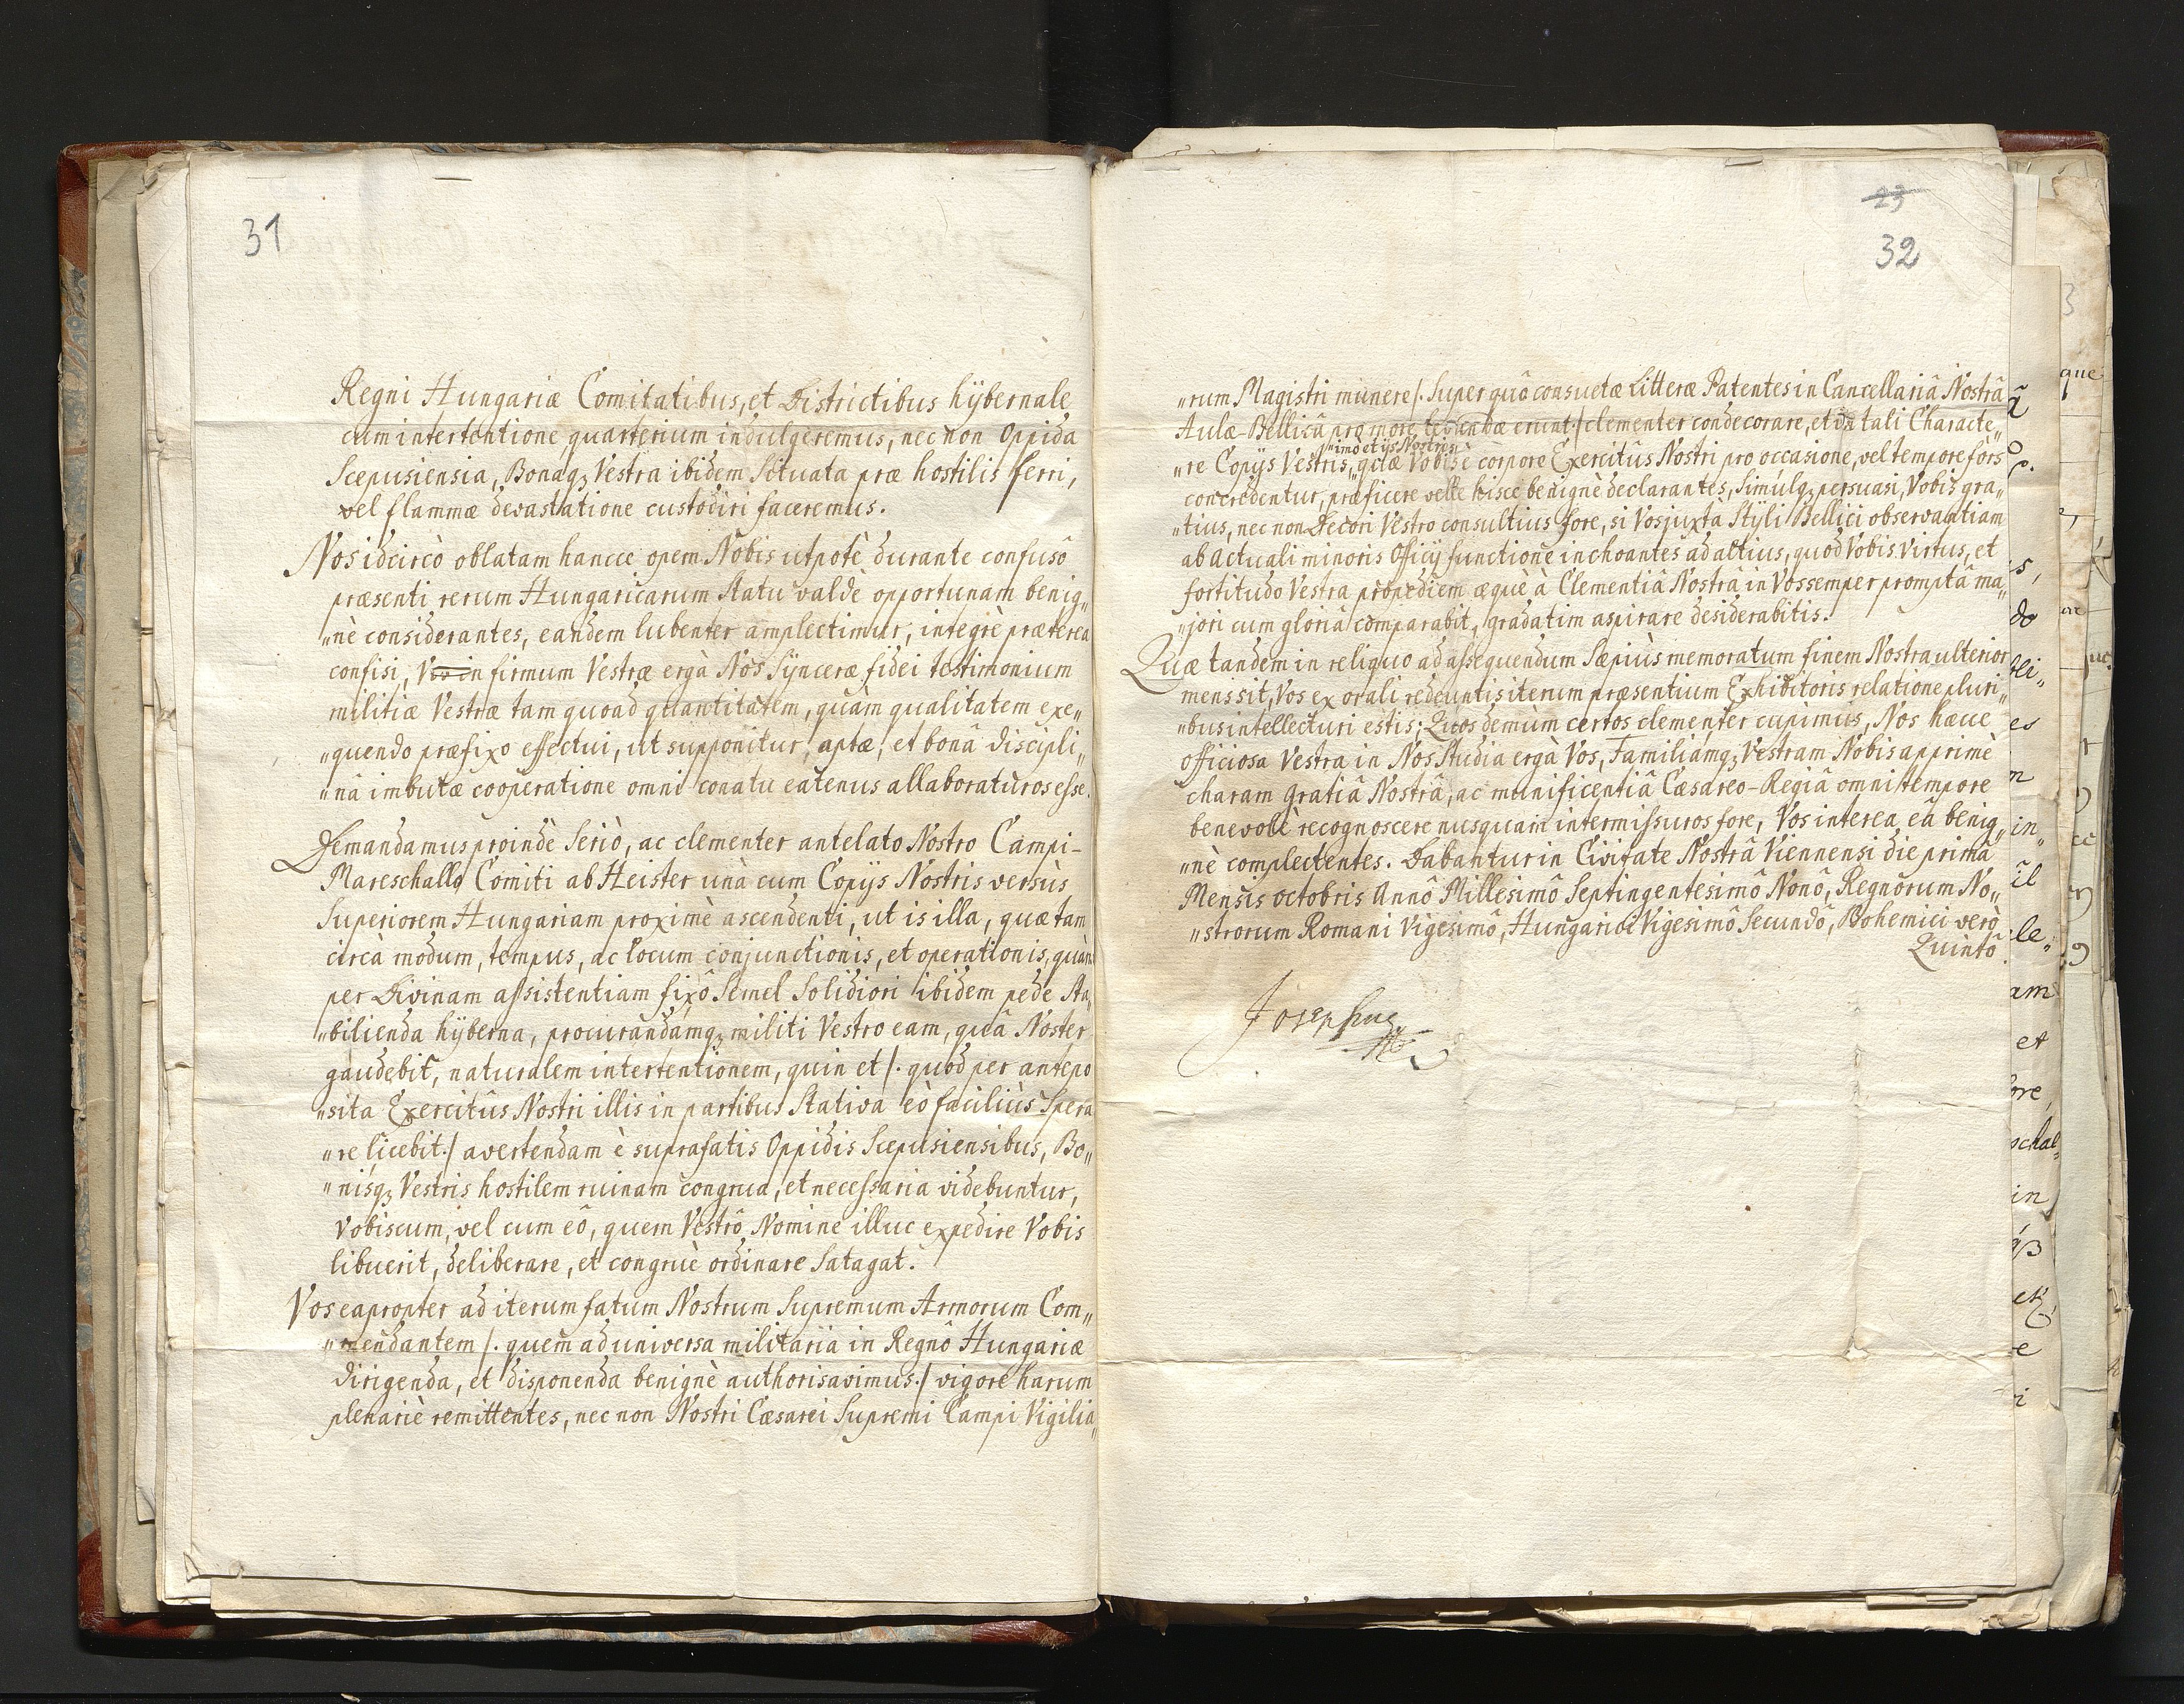 31
Regni Hungariæ Comitatibus, et Districtibus hÿbernale
cum intertentione quarterium indulgeremus, nec non Oppida
Scepusiensia, Bonaqꝫ Vestra ibidem Situata præ hostilis ferri,
vel flammæ devastatione custodiri faceremus.
Nos idcircò oblatam hancce opem Nobis utpotè durante confusô
præsenti rerum Hungaricarum Statu valdè opportunam benig„
„nè considerantes, eandem lubenter amplectimur, integrè præterea
confisi, Vos in firmum Vestræ ergà Nos Sÿnceræ fidei testimonium
militiæ Vestræ tam quoad quantitatem, quàm qualitatem exe„
„quendo præfixo effectui, ut supponitur, aptæ, et bonâ discipli„
„nâ imbutæ cooperatione omni conatu eatenus allaboraturos esse.
Demandamus proindè Seriò, ac clementer antelato Nostro Campi-
Mareschallo Comiti ab Heister unà cum Copÿs Nostris versùs
Superiorem Hungariam proximè ascendenti, ut is illa, quæ tam
circà modum, tempus, ac locum conjunctionis, et operationis, quàm
per Divinam assistentiam fixô Semel Solidiori ibidem pede Sta„
„bilienda hÿberna, procurandamqꝫ militi Vestro eam, quâ Noster
gaudebit, naturalem intertentionem, quin et /. quod per antepo
„sita Exercitûs Nostri illis in partibus Stativa eò faciliùs Spera
„re licebit./ avertendam è suprafatis Oppidis Scepusiensibus, Bo„
„nisqꝫ Vestris hostilem ruinam congrua, et necessaria videbuntur,
Vobiscum, vel cum eô, quem Vestrô Nomine illuc expedire Vobis
libuerit, deliberare, et congruè ordinare Satagat.
Vos eapropter ad iterum fatum Nostrum Supremum Armorum Com„
„mendantem /. quem ad universa militaria in Regnô Hungariæ
dirigenda, et disponenda benignè authorisavimus./ vigore harum
plenariè remittentes, nec non Nostri Cæsarei Supremi Campi Vigilia„
23
32
„rum Magistri munere /. Super quô consuetæ Litteræ Patentes in Cancellariâ Nostrâ
Aulæ-Bellicâ pro more levandæ erunt./ clementer condecorare, et in tali Characte„
„imò et ijs Nostris
„re Copÿs Vestris, quæ Vobis è corpore Exercitûs Nostri pro occasione, vel tempore fors
concredentur, præficere velle hisce benignè declarantes, Simulqꝫ persuasi, Vobis gra„
„tius, nec non Decori Vestro consultius fore, si Vos juxtà Stÿli Bellici observantiam
ab actuali minoris Officÿ functione inchoantes ad altius, quod Vobis virtus, et
fortitudo Vestra propediem æquè à Clementiâ Nostrâ in Vos semper promptâ ma„
„jori cum gloriâ comparabit, gradatim aspirare desiderabitis.
Quæ tandem in reliquo ad assequendum Sæpiùs memoratum finem Nostra ulterior
mens sit, Vos ex orali redeuntis iterum præsentium Exhibitoris relatione pluri„
„bus intellecturi estis; Quos demùm certos clementer cupimus, Nos hæcce
officiosa Vestra in Nos Studia ergà Vos, Familiamqꝫ Vestram Nobis apprimè
charam gratiâ Nostrâ, ac munificentiâ Cæsareo-Regiâ omni tempore
benevolè recognoscere nusquam intermissuros fore, Vos interea eâ benig„
„nè complectentes. Dabantur in Civitate Nostrâ Viennensi die primâ
Mensis octobris Annô Millesimô Septingentesimô Nonô, Regnorum No„
„strorum Romani Vigesimô, Hungarici Vigesimô Secundô, Bohemici verò
Quintô.
Josephus